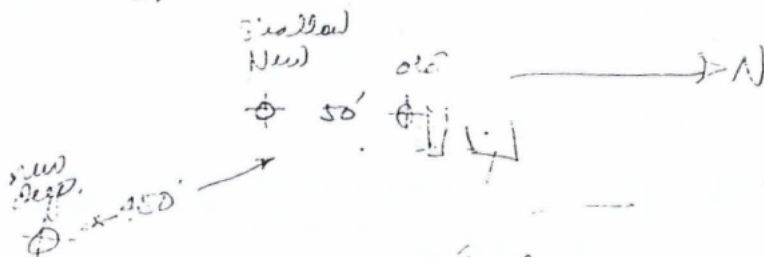 Shallow
New
Old
50'
N
New
Deep.
450'